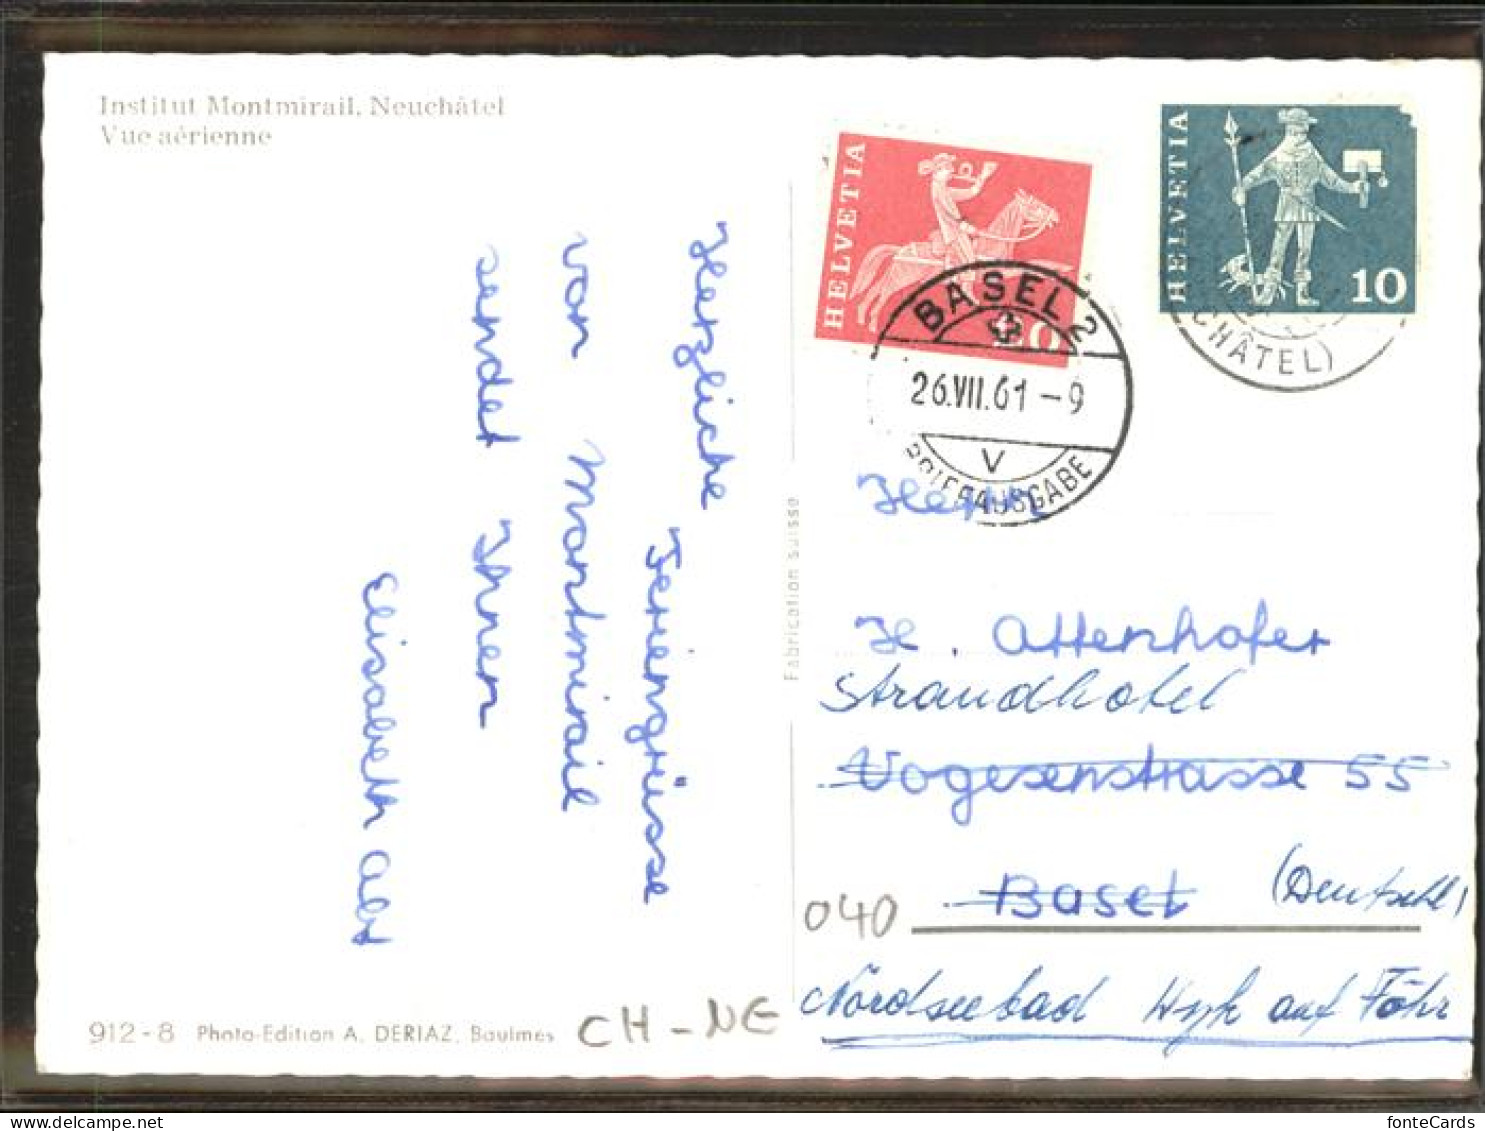 Institut Montmirail, Neuchâtel
Vue aérienne
Herzliche
Feriengrüsse
von Montmirail
sendet Ihnen
Elisabeth Abt
912-8 Photo-Edition A. DERIAZ, Baulmes
CH-NE
Fabrication suisse
HELVETIA
HELVETIA
10
CHÂTEL)
BASEL 2
26.VII.61-9
V
BRIEFAUSGABE
Herrn
H. Attenhofer
Strandhotel
Vogesenstrasse 55
Basel
(Deutschl)
040
Nordseebad Wyk auf Föhr
fonteCards